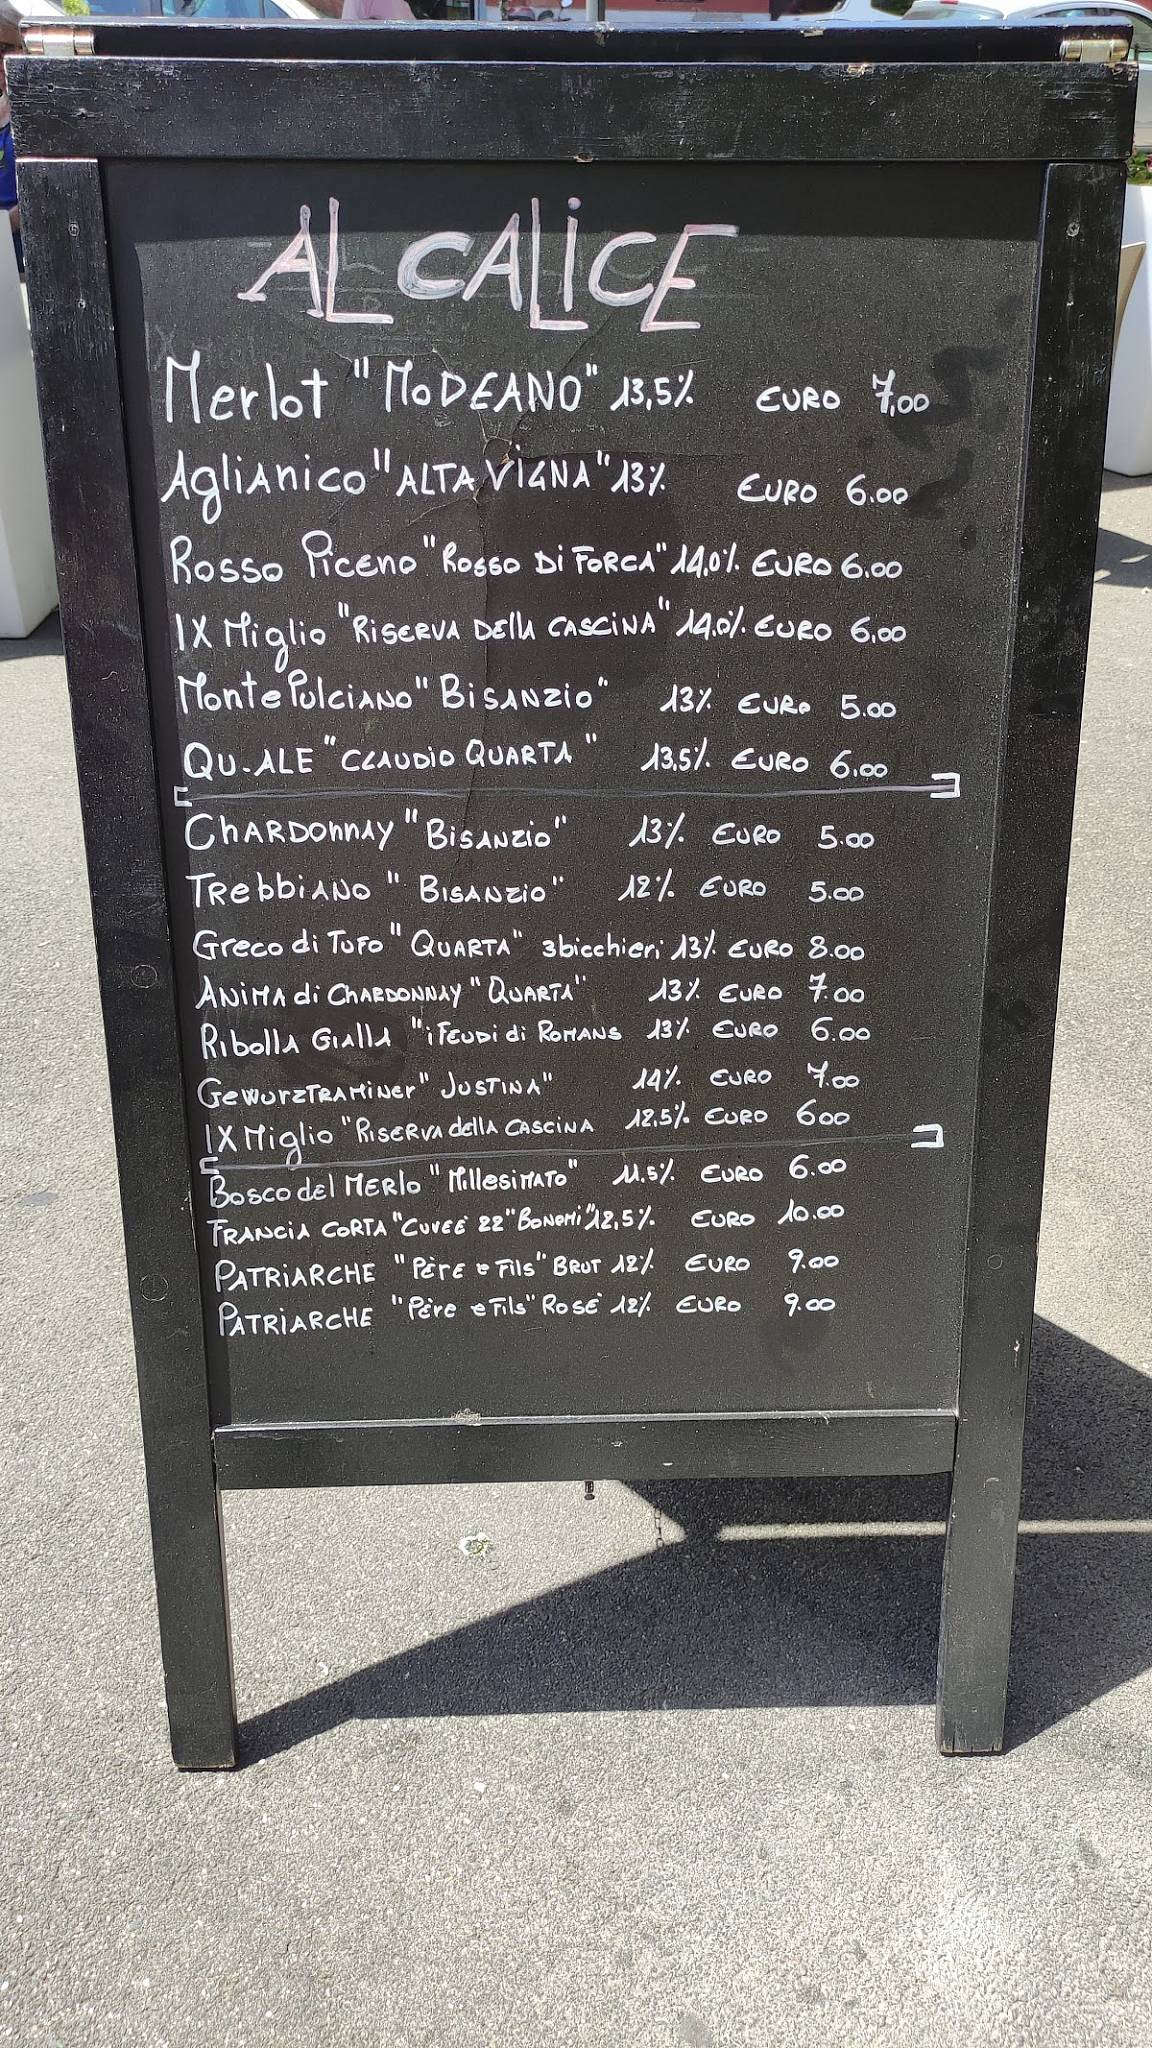 AL CALICE
Merlot "MODEANO" 13,5% EURO 7,00
AGLIANICO "ALTA VIGNA" 13% EURO 6.00
ROSSO PICENO "ROSSO DI FORCA" 14,0% EURO 6.00
IX Miglio "RISERVA DEllA CASCINA" 14,0% EURO 6,00
MontePulciano "BISANZIO" 13% EURO 5.00
QU.ALE "CLAUDIO QUARTA" 13,5% EURO 6,00
CHARDONNAY "BISANZIO" 13% EURO 5.00
TRebbiANO "BISANZIO" 12% EURO 5.00
Greco di TUFO "QUARTA" 3bicchieri 13% EURO 8.00
ANIMA di CHARDONNAY "QUARTA" 13% EURO 7.00
Ribolla GIALLA "i FEUDI di ROMANS 13% EURO 6.00
GEWURZTRAMINER "JUSTINA" 14% EURO 7.00
IX Miglio "RISERVA della CASCINA 12,5% EURO 600
BOSCO del MERLO "MillesiMATO" 11.5% EURO 6.00
FRANCIA CORTA "CUVEÈ 22" BONOMI" 12,5% EURO 10.00
PATRIARCHE "PÈRE e Fils" BRUT 12% EURO 9.00
PATRIARCHE "PÈre e Fils" ROSÈ 12% EURO 9.00